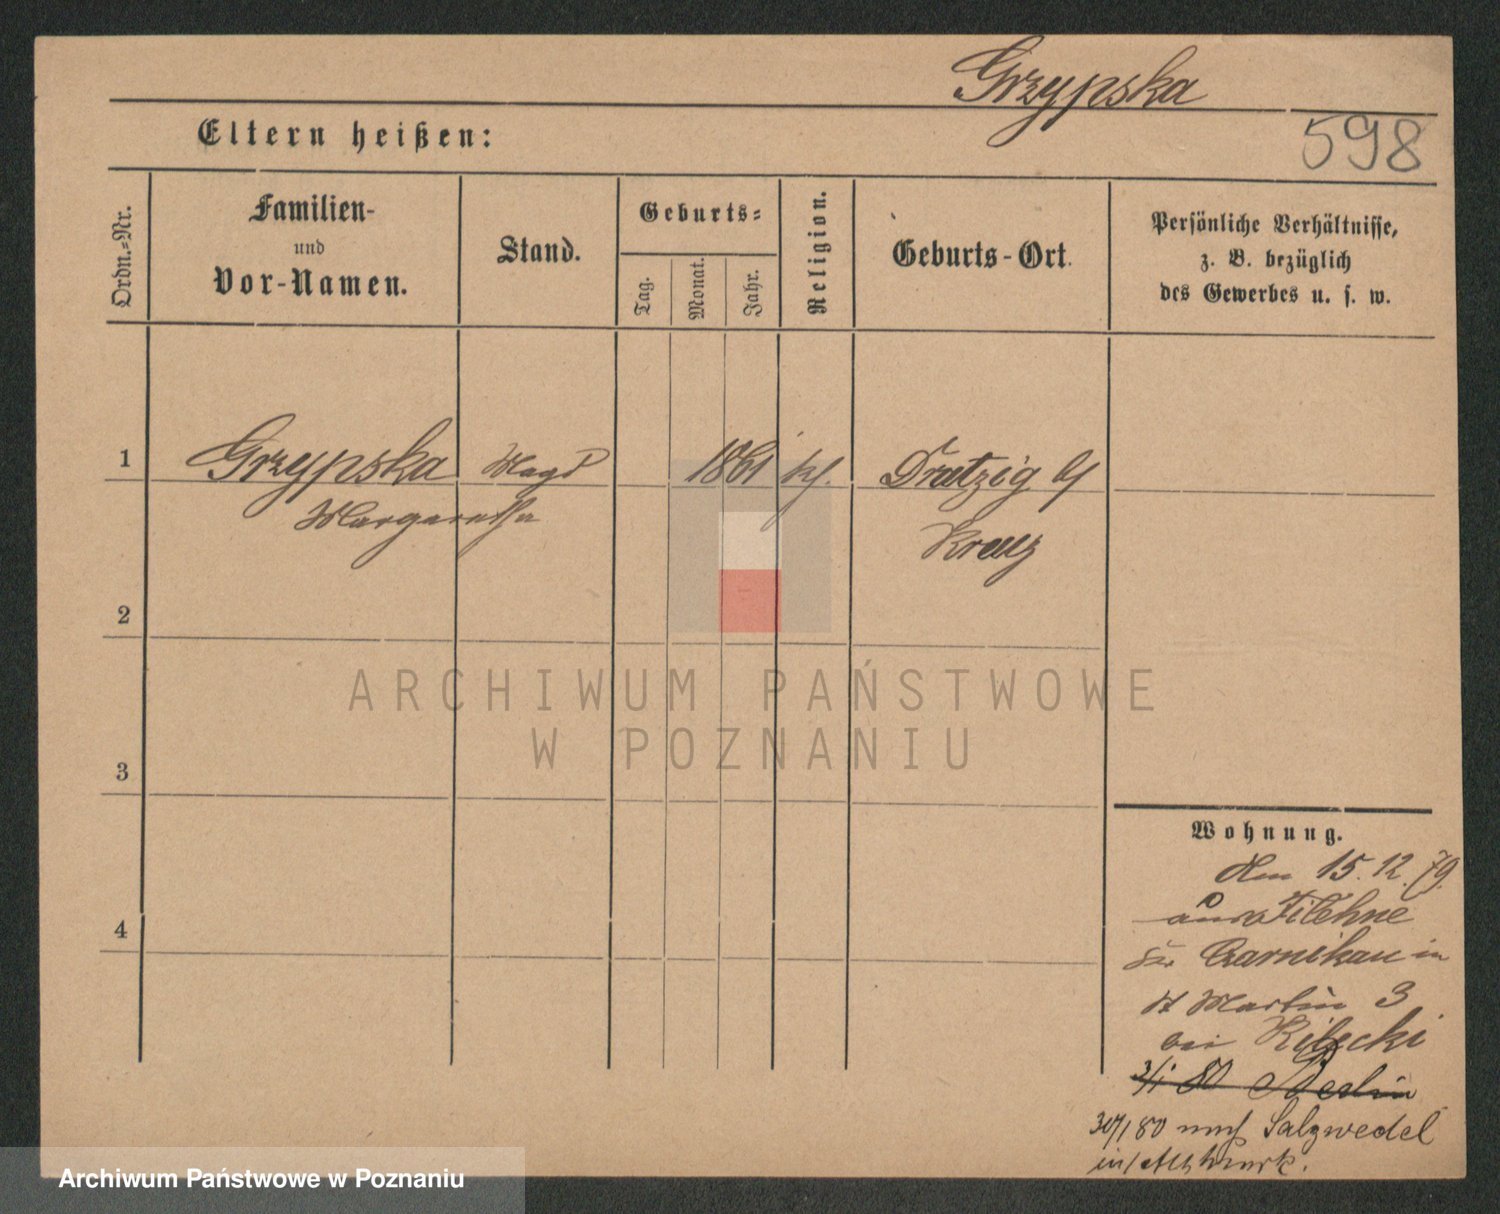 Grzypska
598
Eltern heißen:
Ordn.=Nr.
Familien-
und
Vor-Namen.
Stand.
Geburts=
Tag.
Monat.
Jahr.
Religion.
Geburts-Ort.
Persönliche Verhältnisse,
z. B. bezüglich
des Gewerbes u. s. w.
1 Grzypska Magd 1861 kh. Dratzig b/
Margaretha Kreuz
2
3
4
ARCHIWUM PAŃSTWOWE
W POZNANIU
Wohnung.
den 15. 12. 79.
aus Filehne
Czarnikau in
St Martin 3
bei
3/1 80 Berlin
30/1 80 nach Salzwedel
in/Altmark.
Archiwum Państwowe w Poznaniu